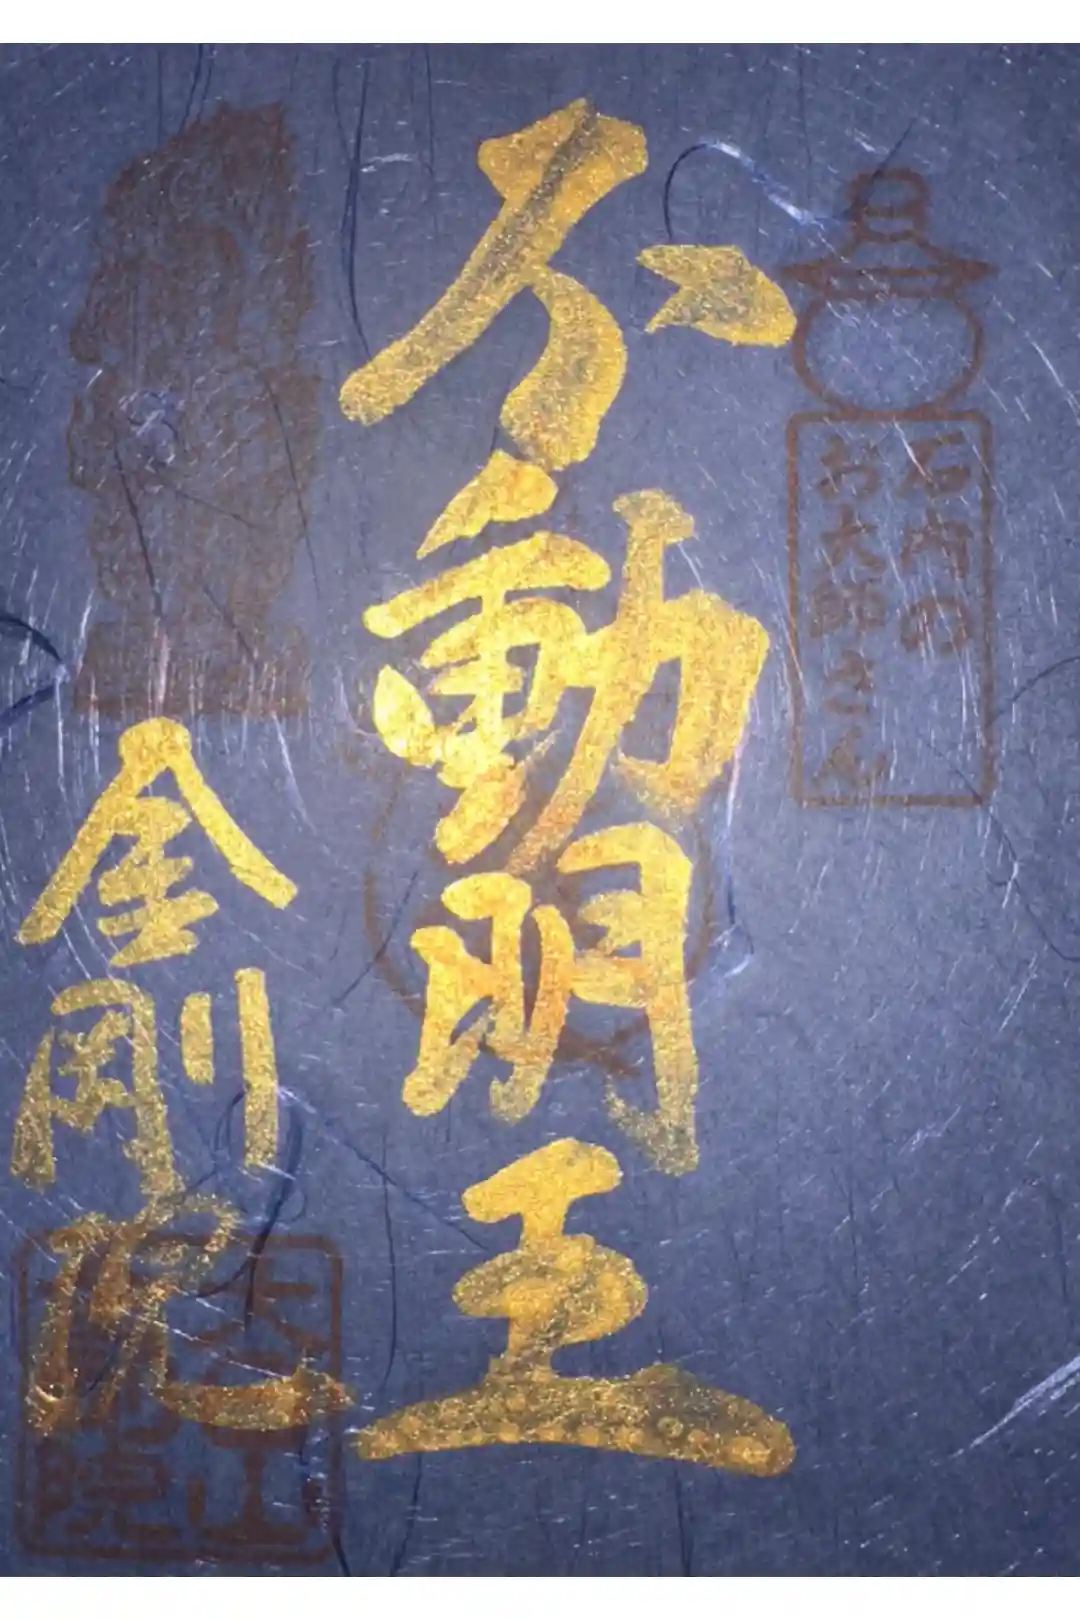 石内の
お大師さん
不動明王
金剛院